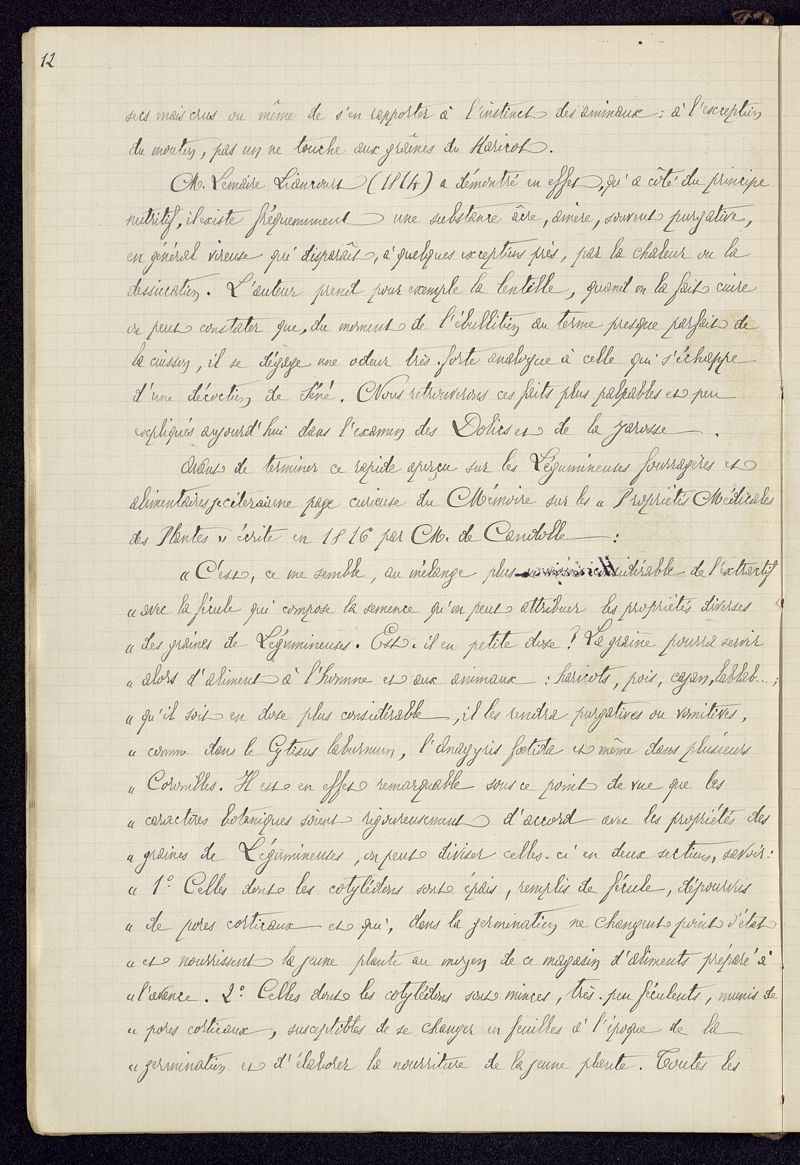 12
secs mais crus ou même de s'en rapporter à l'instinct des animaux : à l'exception
du mouton, pas un ne touche aux graines du Haricot.
M. Lemaire Liancourt (1814) a démontré en effet, qu'à côté du principe
nutritif, il existe fréquemment une substance âcre, amère, souvent purgative,
en général vireuse qui disparaît, à quelques exceptions près, par la chaleur ou la
dessiccation. L'auteur prend pour exemple la lentille, quand on la fait cuire
on peut constater que, du moment de l'ébullition au terme presque parfait de
la cuisson, il se dégage une odeur très-forte analogue à celle qui s'échappe
d'une décoction de Séné. Nous retrouverons ces faits plus palpables et peu
expliqués aujourd'hui dans l'examen des Dolics et de la Jarosse.
Avant de terminer ce rapide aperçu sur les Légumineuses fourragères et
alimentaires je citerai une page curieuse du Mémoire sur les « Propriétés Médicales
des Plantes » écrite en 1816 par M. de Candolle :
« C'est, ce me semble, au mélange plus considérable de l'extractif
« avec la fécule qui compose la semence qu'on peut attribuer les propriétés diverses
« des graines de Légumineuses. Est-il en petite dose ? La graine pourra servir
« alors d'aliment à l'homme et aux animaux : haricots, pois, cajan, lablab....;
« qu'il soit en dose plus considérable, il les rendra purgatives ou vomitives,
« comme dans le Cytisus laburnum, l'anagyris fœtida et même dans plusieurs
« Coronilles. Il est en effet remarquable sous ce point de vue que les
« caractères botaniques soient rigoureusement d'accord avec les propriétés des
« graines de Légumineuses, on peut diviser celles-ci en deux sections, savoir :
« 1° Celles dont les cotylédons sont épais, remplis de fécule, dépourvus
« de pores corticaux et qui, dans la germination ne changent point d'état
« et nourrissent la jeune plante au moyen de ce magasin d'aliments préparé à
« l'avance. 2° Celles dont les cotylédons sont minces, très-peu féculents, munis de
« pores corticaux, susceptibles de se changer en feuilles à l'époque de la
« germination et d'élaborer la nourriture de la jeune plante. Toutes les